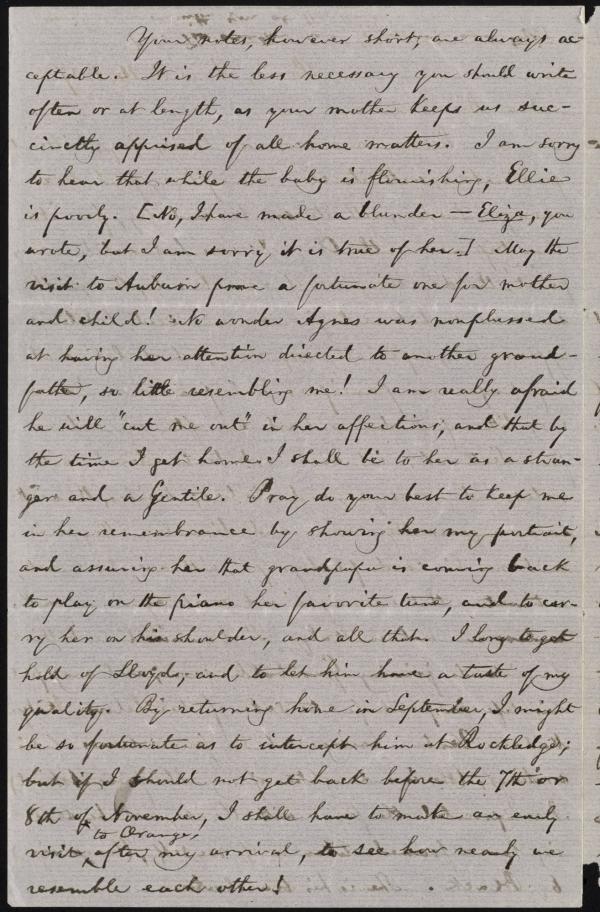 Your notes, however short, are always ac-
ceptable. It is the less necessary you should write
often or at length, as your mother keeps us suc-
cinctly apprised of all home matters. I am sorry
to hear that while the baby is flourishing, Ellie
is poorly. [No, I have made a blunder — Eliza, you
wrote, but I am sorry it is true of her.] May the
visit to Auburn prove a fortunate one for mother
and child! No wonder Agnes was nonplussed
at having her attention directed to another grand-
father, so little resembling me! I am really afraid
he will "cut me out" in her affections, and that by
the time I get home I shall be to her as a stran-
ger and a Gentile. Pray do your best to keep me
in her remembrance by showing her my portrait,
and assuring her that grandpapa is coming back
to play on the piano her favorite tune, and to car-
ry her on his shoulder, and all that. I long to get
hold of Lloydo, and to let him have a taste of my
quality. By returning home in September, I might
be so fortunate as to intercept him at Rockledge;
but if I should not get back before the 7th or
8th of November, I shall have to make an early
visit to Orange, after my arrival, to see how nearly we
resemble each other!